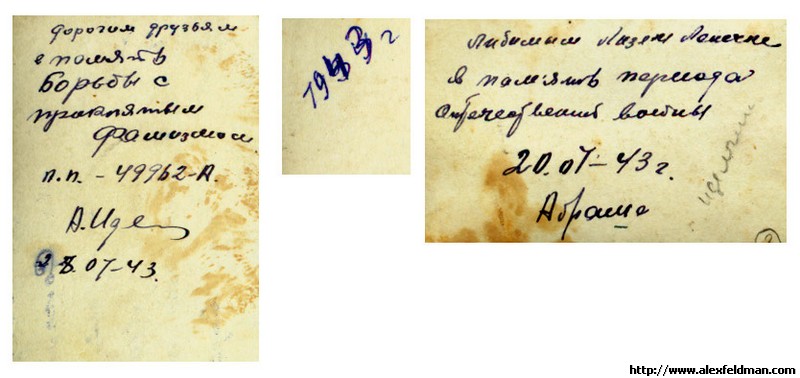 дорогим друзьям
в память
Борьбы с
проклятым
Фашизмом
п.п. - 49962-А.
А.Иде
28.07-43.
1943 г
Любимым Лизе и Леночке
в память периода
Отечественной войны
20.07-43 г.
Абраша
http://www.alexfeldman.com